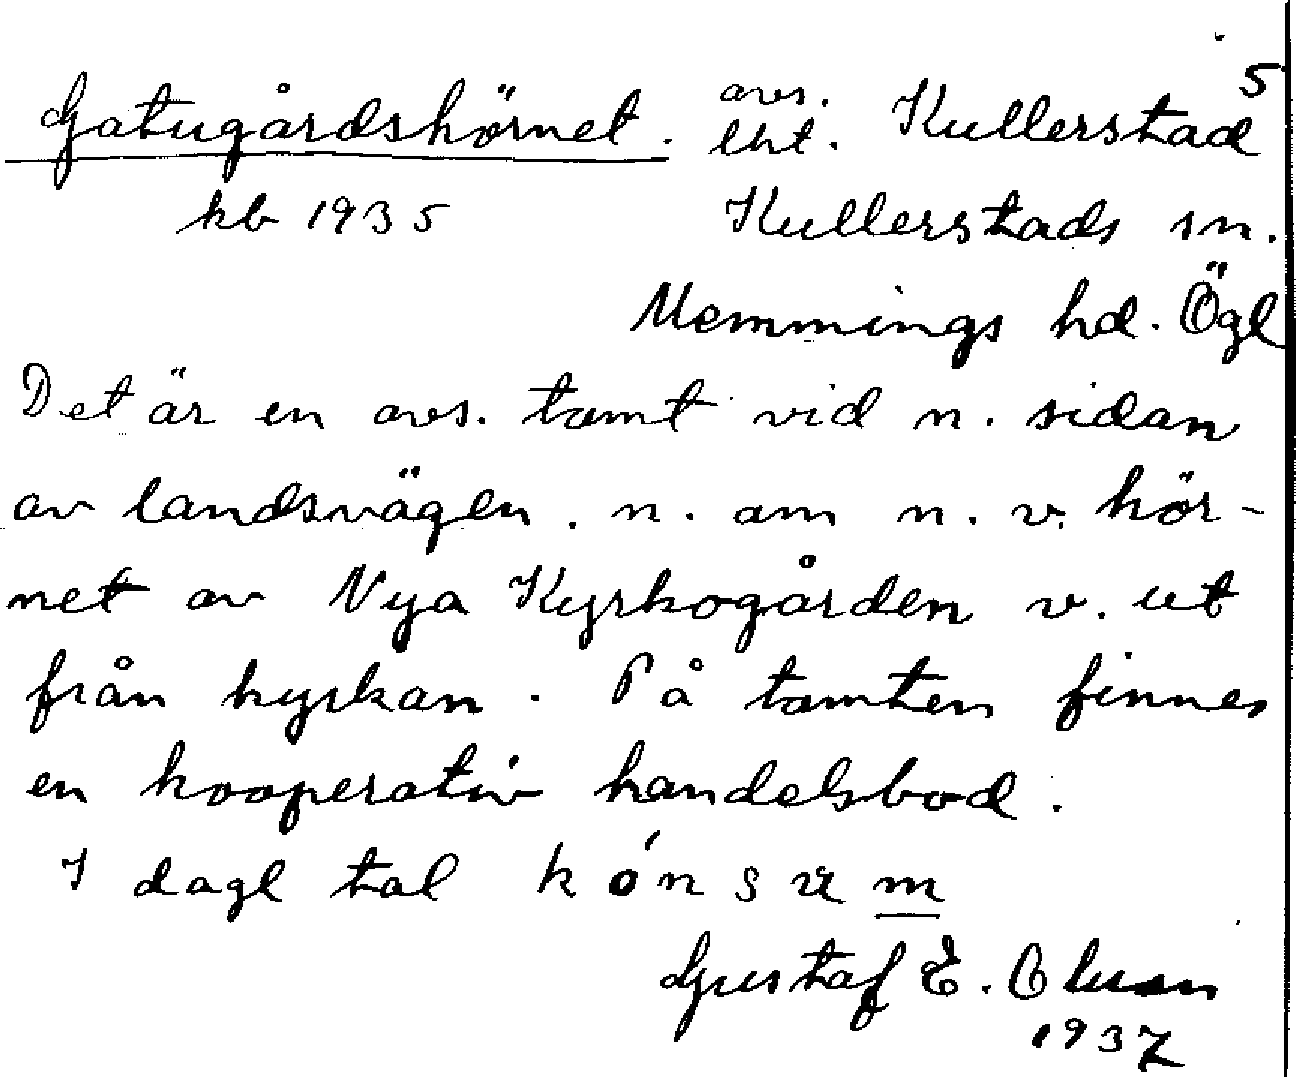 5
Gatugårdshörnet. avs. lht. Kullerstad
kb 1935 Kullerstads sn.
Memmings hd. Ögl
Det är en avs. tomt vid n. sidan
av landsvägen. n. om n. v. hör-
net av Nya Kyrkogården v. ut
från kyrkan. På tomten finnes
en kooperativ handelsbod.
I dagl tal kónsum
Gustaf E.
1937